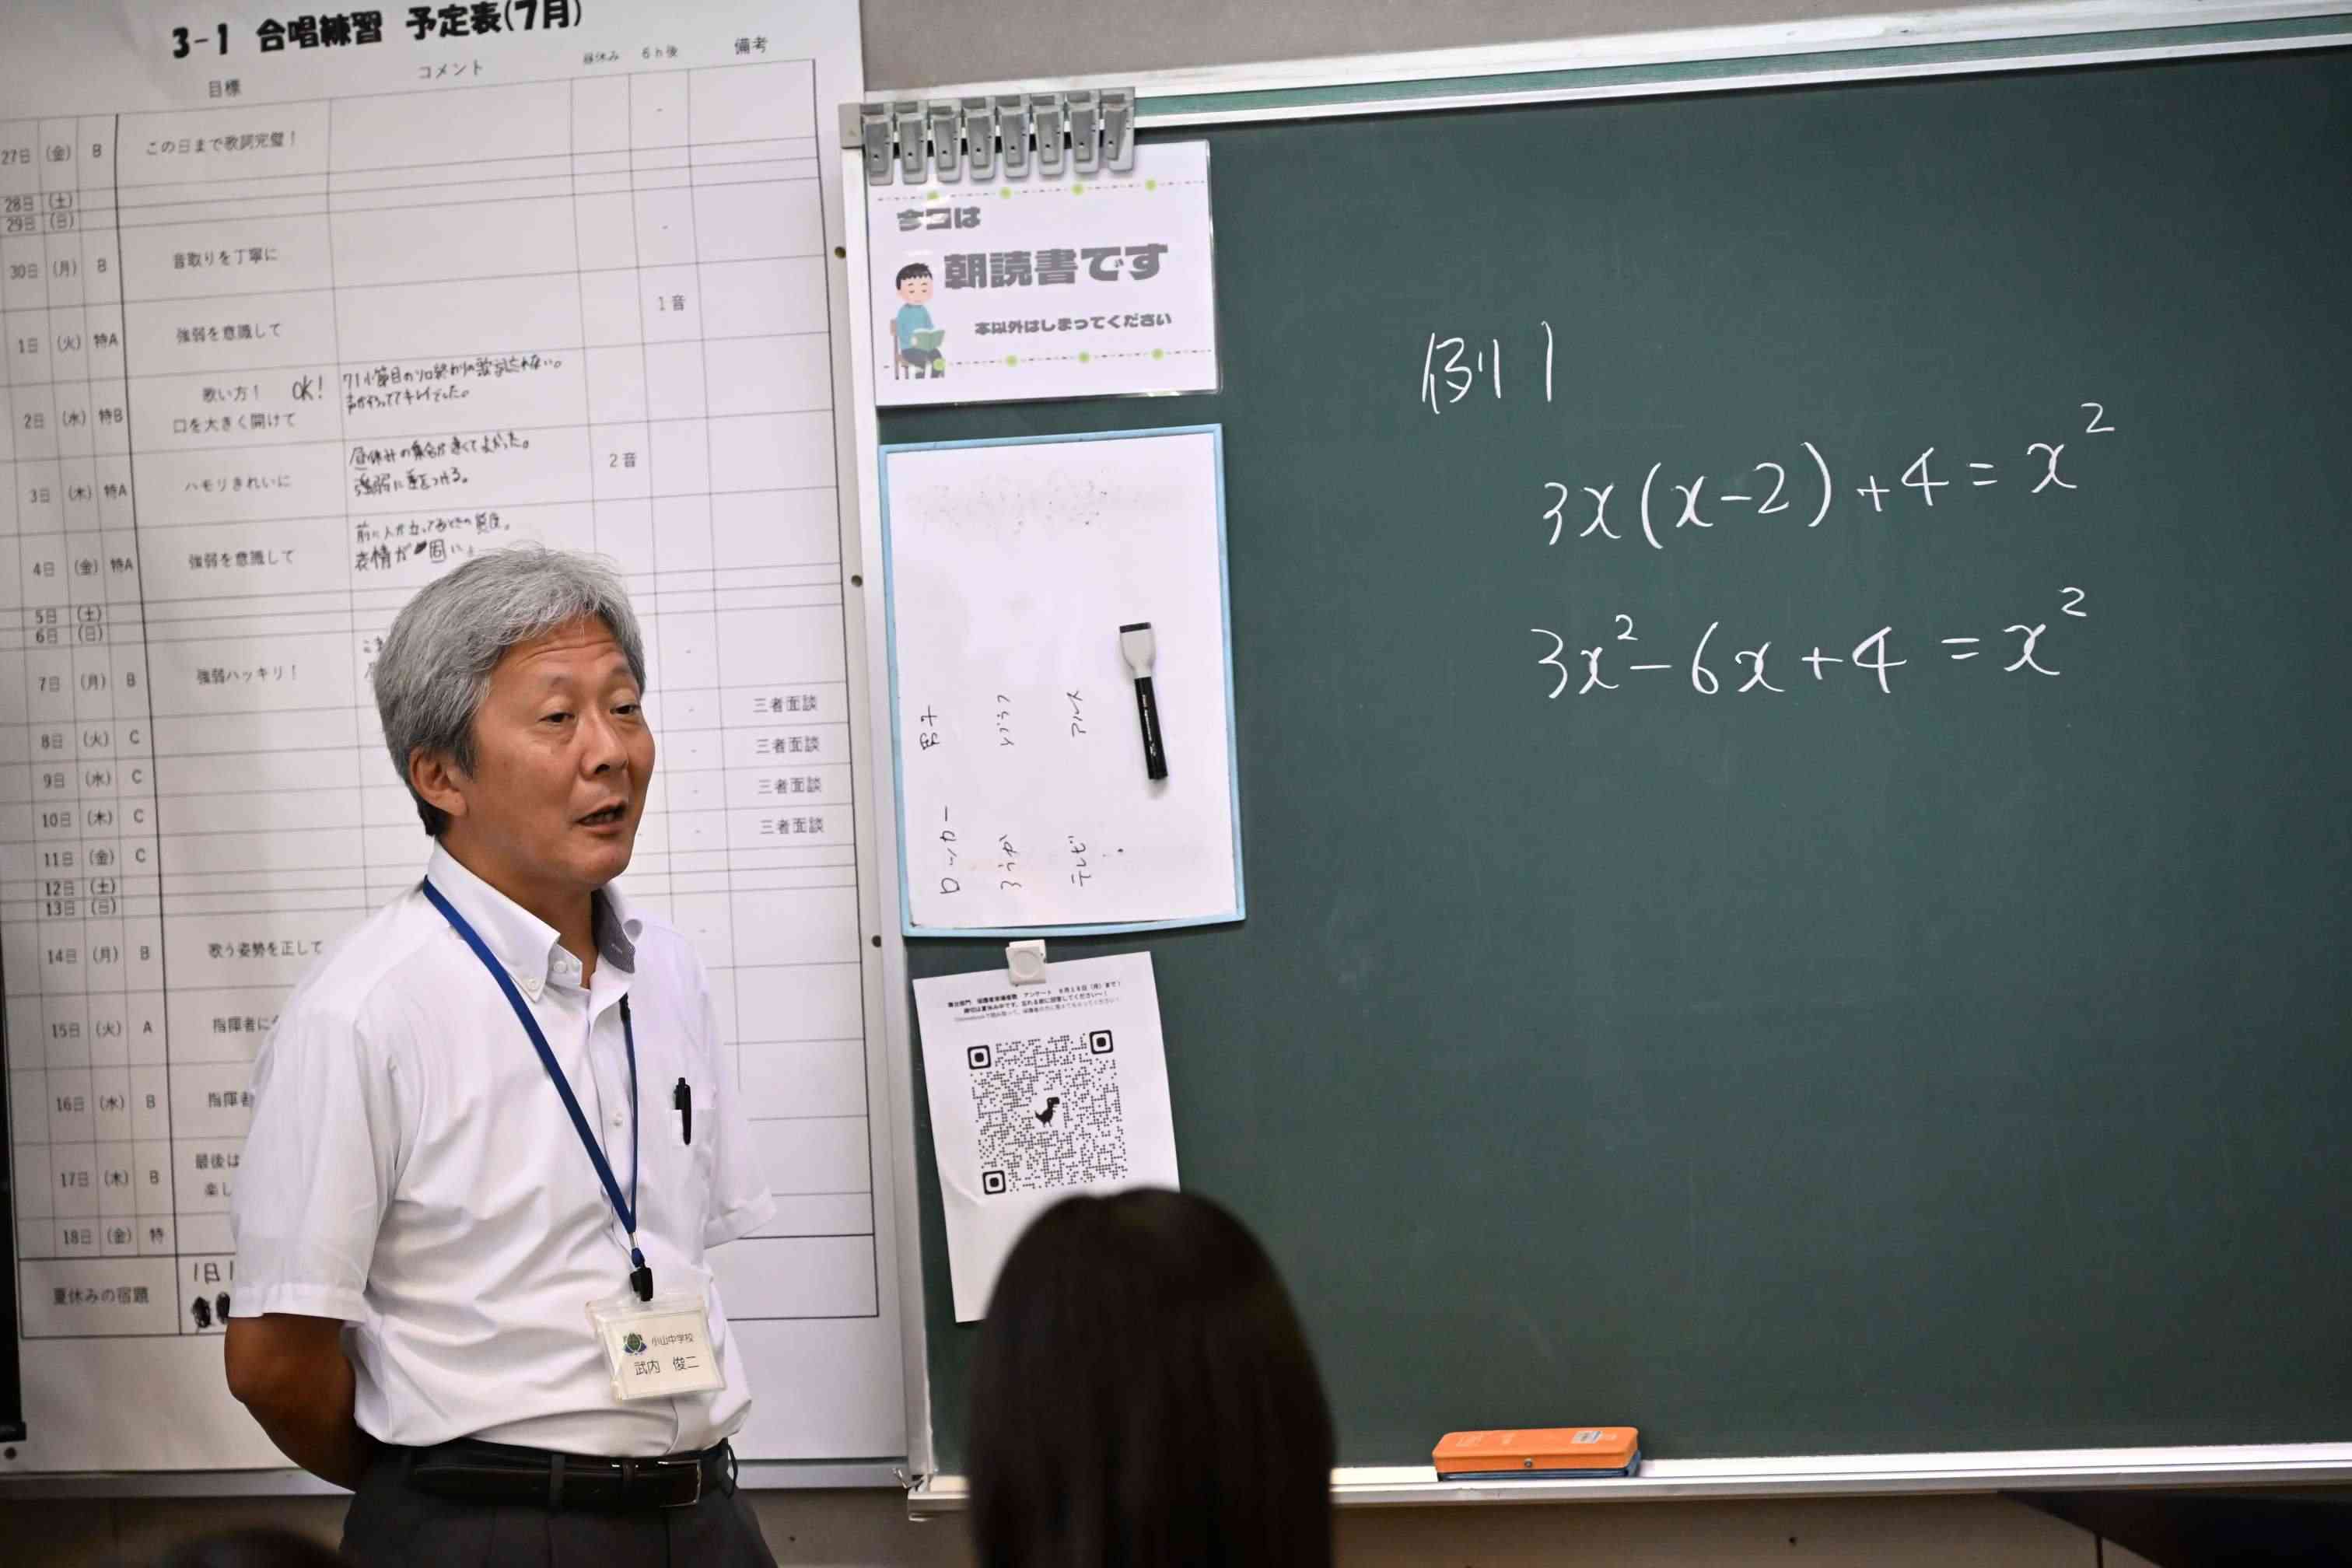 3-1 合唱練習 予定表(7月)
目標 コメント 昼休み 6h後 備考
27日 (金) B この日まで歌詞完璧！ -
28日 (土)
29日 (日)
30日 (月) B 音取りを丁寧に -
1日 (火) 特A 強弱を意識して 1音
2日 (水) 特B 歌い方！ OK! 71小節目のソロ終わりの歌詞忘れない。
口を大きく開けて
3日 (木) 特A ハモリきれいに 昼休みの集合が速くてよかった。 2音
強弱に気をつける。
4日 (金) 特A 強弱を意識して 前に人が立ってるときの
表情が固い。
5日 (土)
6日 (日)
7日 (月) B 強弱ハッキリ！ -
8日 (火) C - 三者面談
9日 (水) C - 三者面談
10日 (木) C - 三者面談
11日 (金) C - 三者面談
12日 (土)
13日 (日)
14日 (月) B 歌う姿勢を正して
15日 (火) A 指揮者に
16日 (水) B 指揮者
17日 (木) B 最後は
楽し
18日 (金) 特
夏休みの宿題 1日1
今日は
朝読書です
本以外はしまってください
ロッカー
ろうか
テレビ
アルス
小山中学校
武内 俊二
例1
3x(x-2)+4=x²
3x²-6x+4=x²